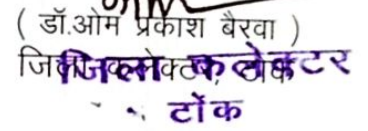 ( डॉ.ओम प्रकाश बैरवा )
जिला कलेक्टर, टोंक
जिला कलेक्टर
टोंक